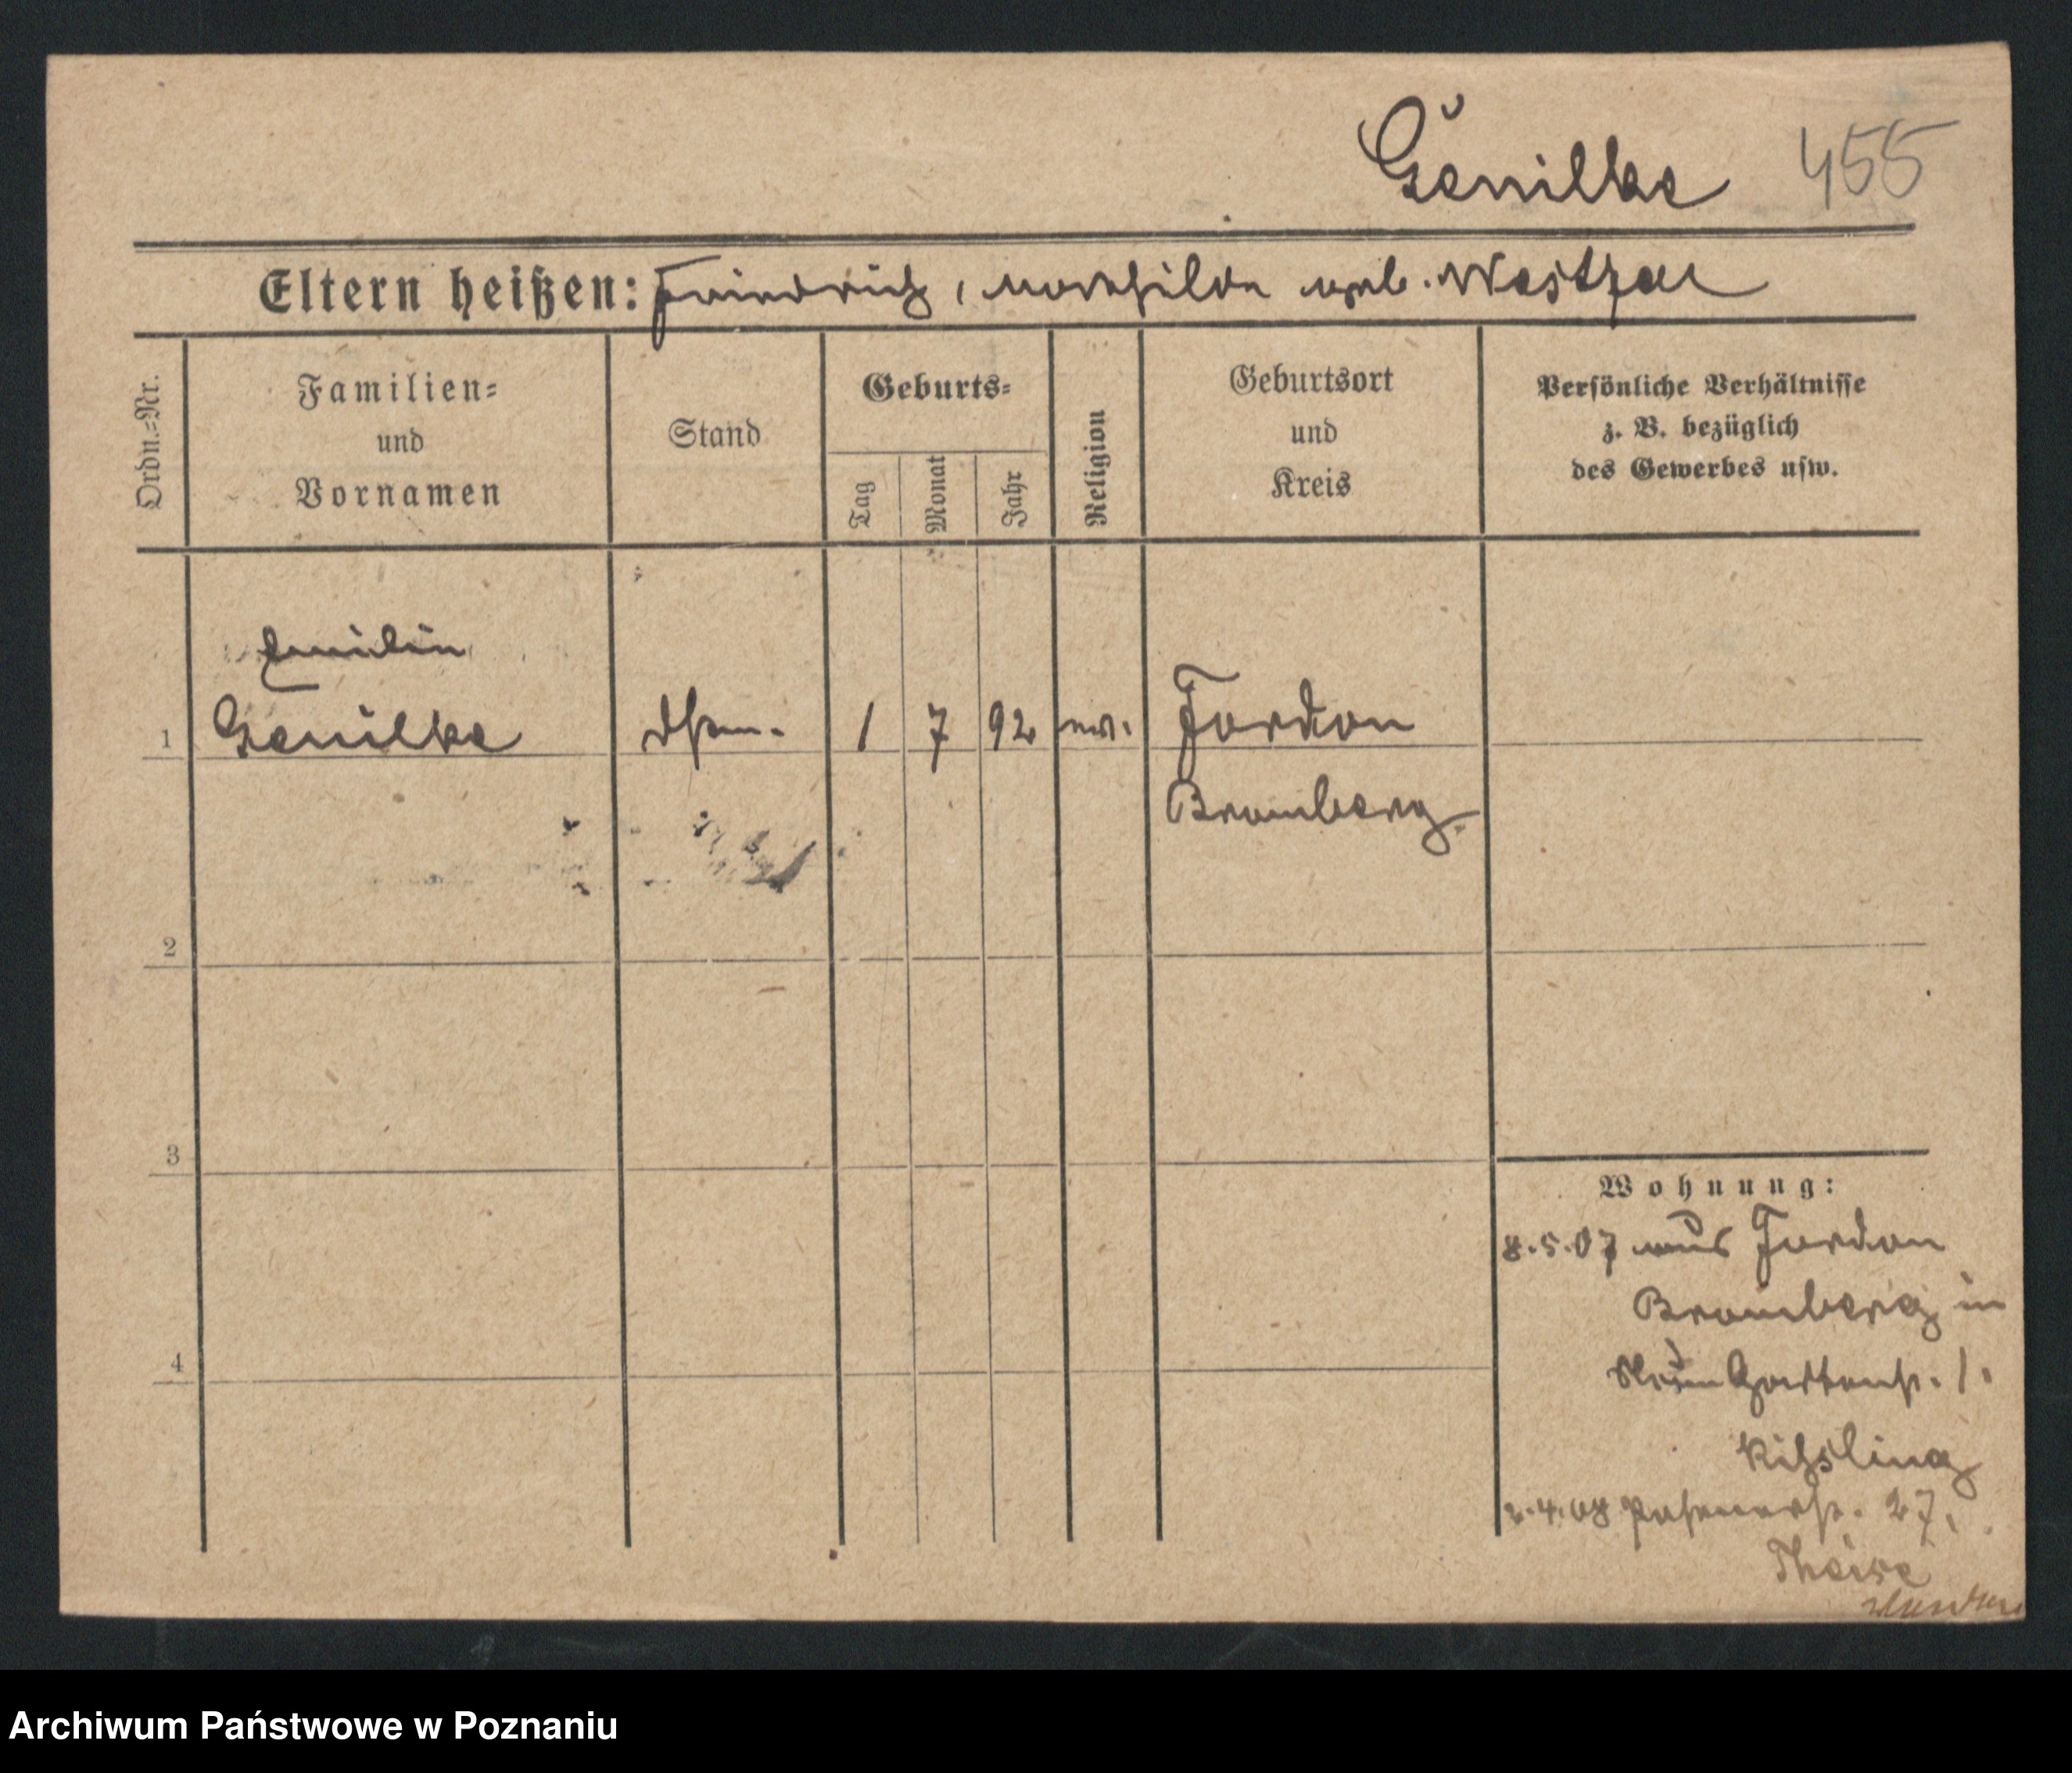 Genilke 455
Eltern heißen: Friedrich, Mathilde geb. Westfal
Ordn.-Nr.
Familien-
und
Vornamen
Stand
Geburts-
Tag
Monat
Jahr
Religion
Geburtsort
und
Kreis
Persönliche Verhältnisse
z. B. bezüglich
des Gewerbes usw.
Emilie
1 Genilke 1 7 92 ev. Fordon
Bromberg
2
3
4
Wohnung:
8.5.07 aus Fordon
Bromberg in
Gartenstr. 1.
Kißling
2.4.08 Posenerstr. 27.